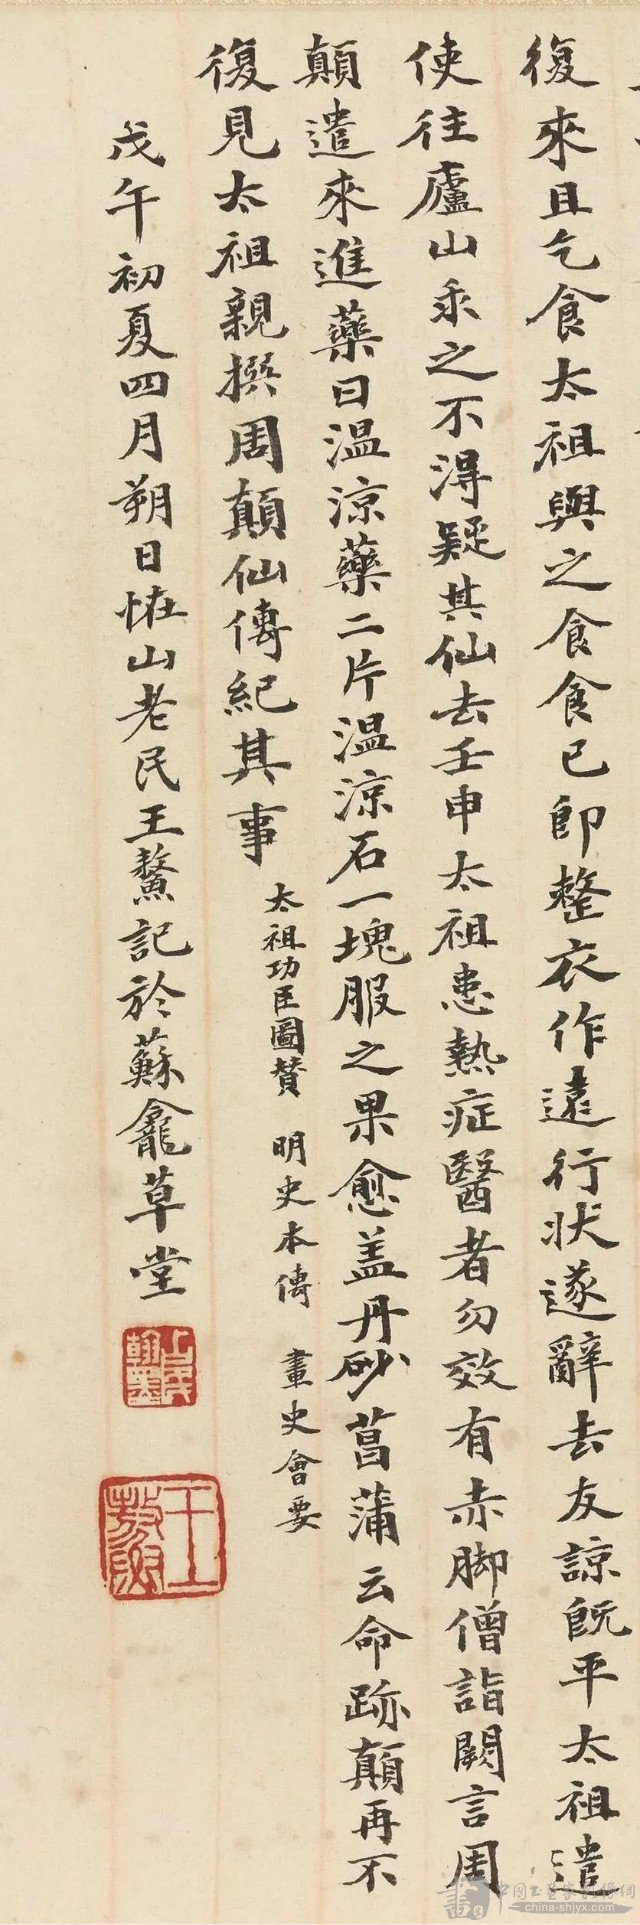 復來且乞食太祖與之食食已卽整衣作遠行狀遂辭去友諒旣平太祖遣
使往廬山求之不得疑其仙去壬申太祖患熱症醫者勿效有赤脚僧詣闕言周
顛遣來進藥曰溫涼藥二片溫涼石一塊服之果愈盖丹砂菖蒲云命跡顛再不
復見太祖親撰周顛仙傳紀其事
太祖功臣圖贊 明史本傳 畫史會要
戊午初夏四月朔日恠山老民王鰲記於蘇龕草堂
中国书画家影像网
china-shjyx.com